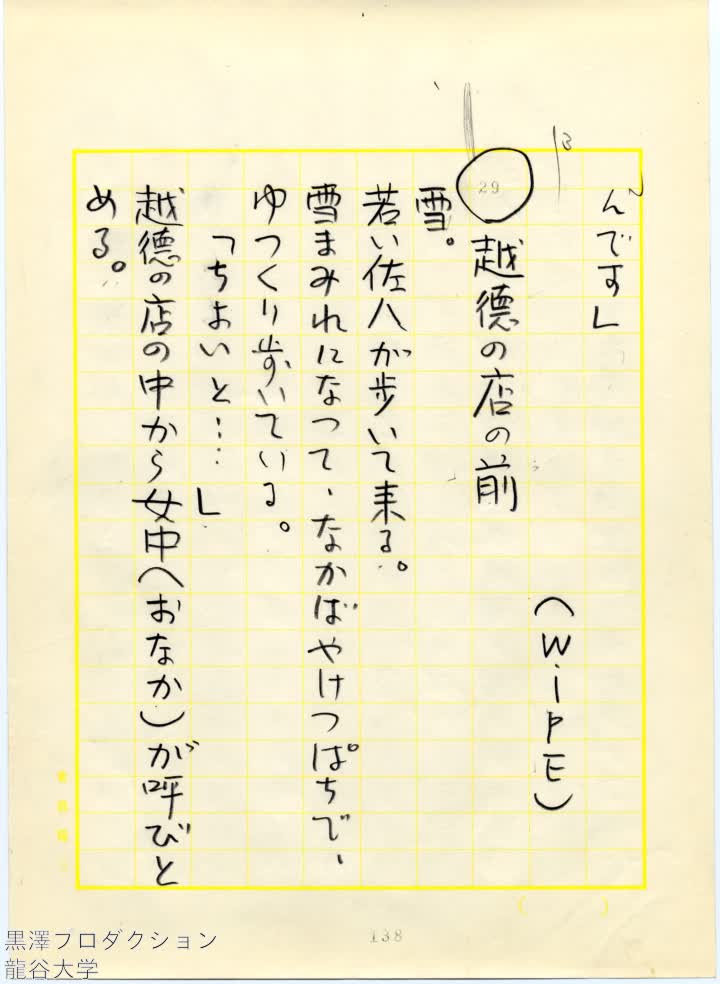 んです」
(WiPE)
29 越徳の店の前
雪。
若い佐八が歩いて来る。
雪まみれになつて、なかばやけつぱちで、
ゆつくり歩いている。
「ちよいと……」
越徳の店の中から女中(おなか)が呼びと
める。
138
黒澤プロダクション
龍谷大学